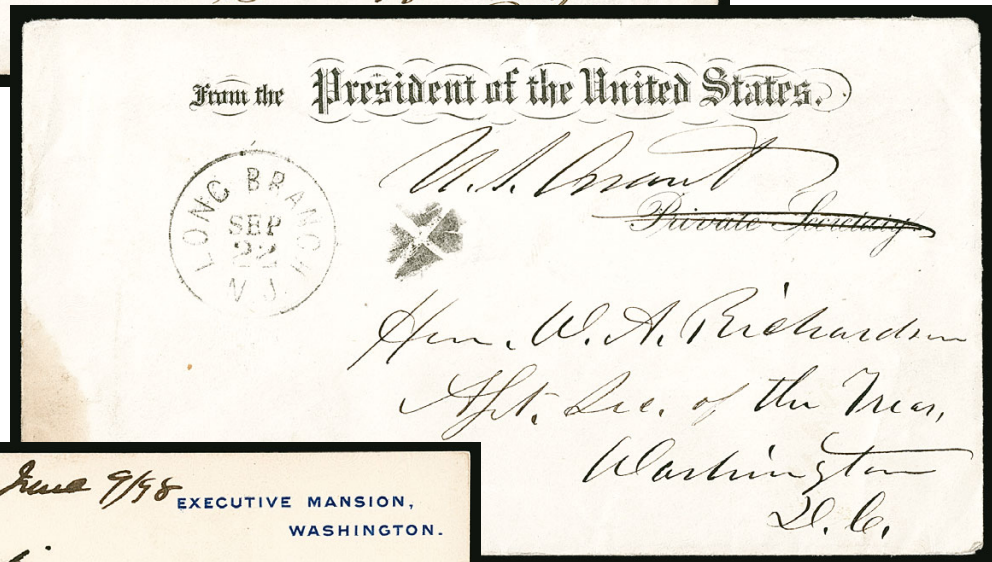 From the President of the United States.
U. S. Grant
Private Secretary
LONG BRANCH
SEP
22
N.J.
Hon. W. A. Richardson
Asst. Sec. of the Treas,
Washington
D. C.
June 9/98
EXECUTIVE MANSION,
WASHINGTON.